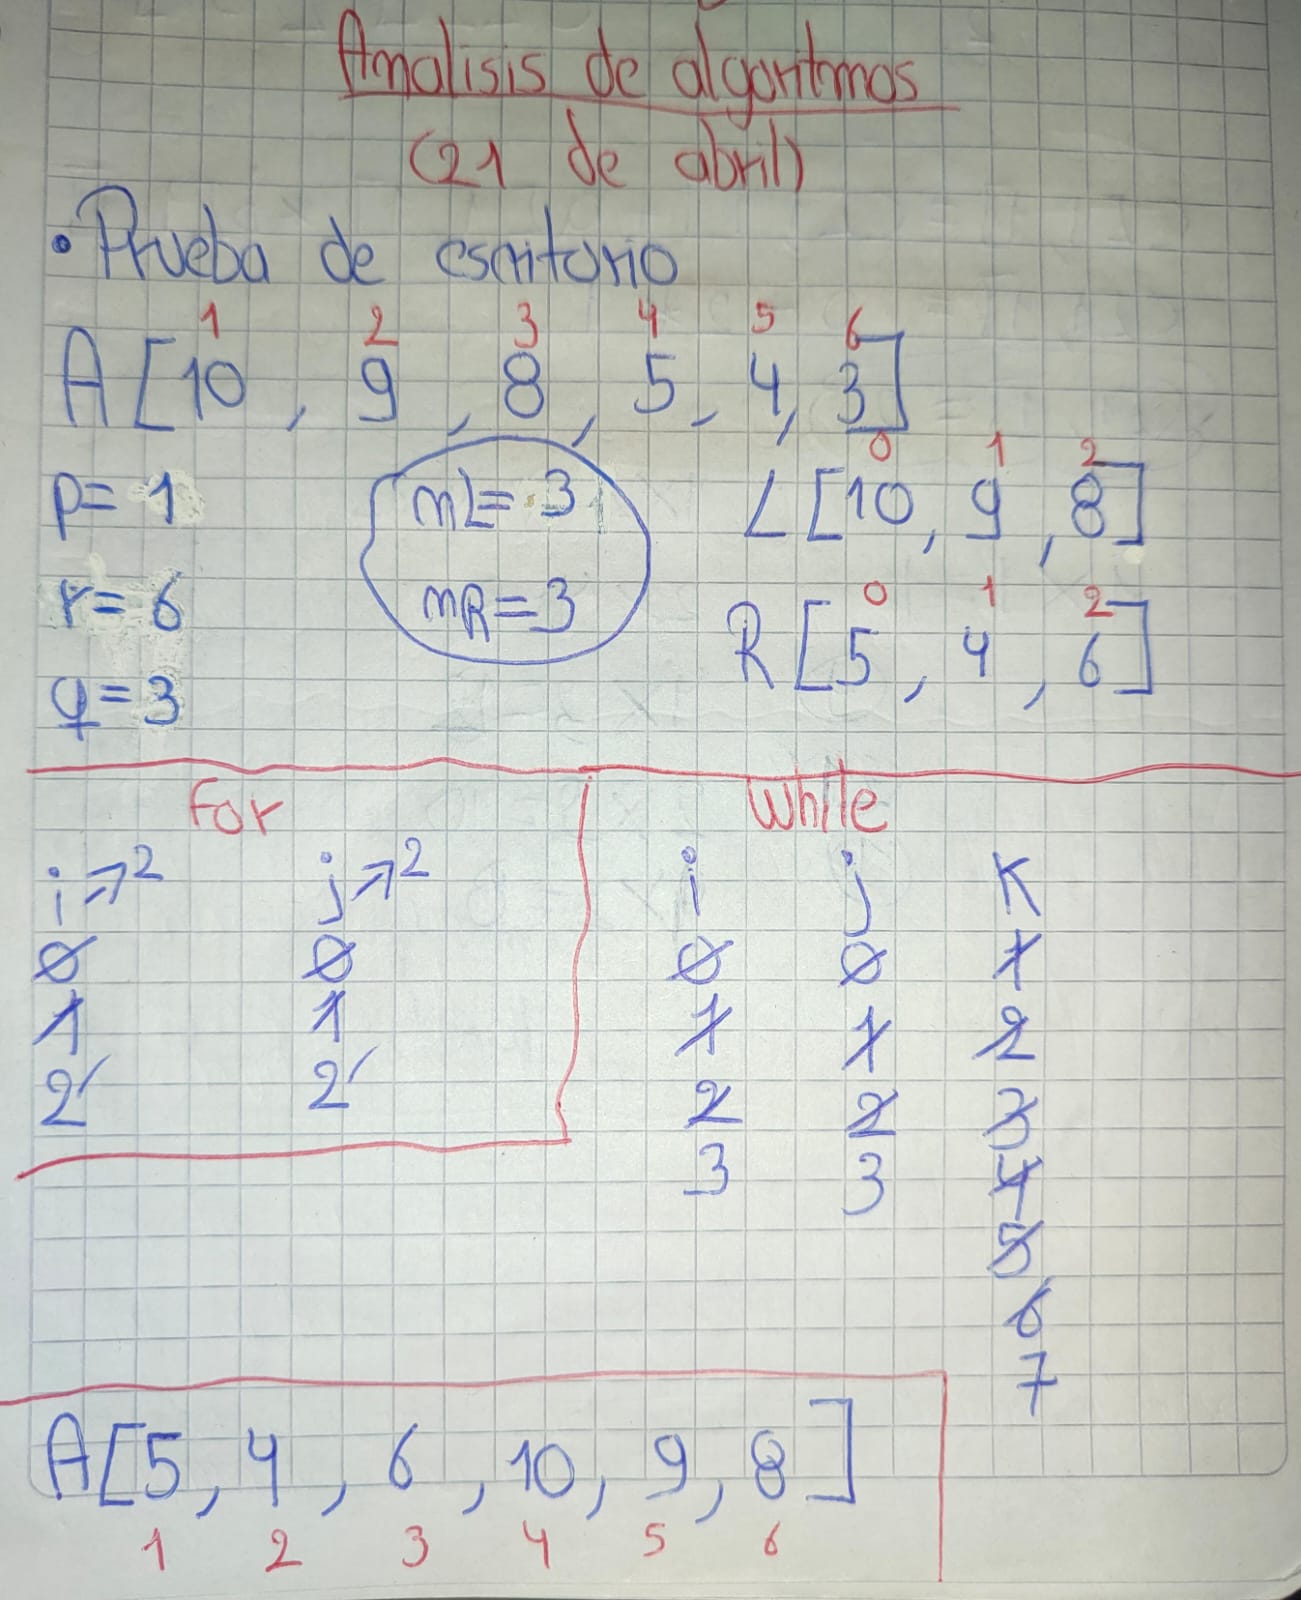 Analisis de algoritmos
(21 de abril)
• Prueba de escritorio
1 2 3 4 5 6
A [10, 9, 8, 5, 4, 3]
p= 1
r= 6
q=3
nL= 3
nR=3
0 1 2
L [10, 9, 8]
0 1 2
R [5, 4, 6]
For
i→2 j→2
0 0
1 1
2 2
While
i j K
0 0 1
1 1 2
2 2 3
3 3 4
5
6
7
A[5, 4, 6, 10, 9, 8]
1 2 3 4 5 6